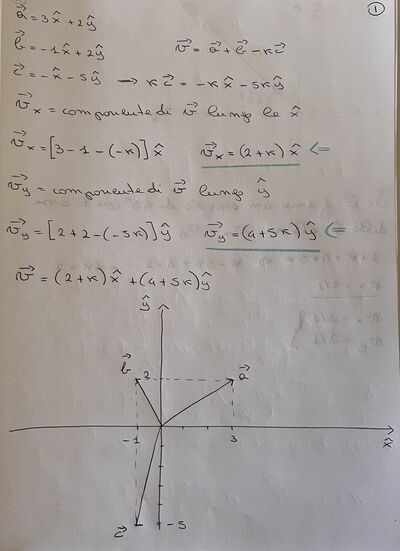 1
a⃗ = 3x̂ + 2ŷ
b⃗ = -1x̂ + 2ŷ v⃗ = a⃗ + b⃗ - κc⃗
c⃗ = -x̂ - 5ŷ → κc⃗ = -κx̂ - 5κŷ
v⃗x = componente di v⃗ lungo le x̂
v⃗x = [3 - 1 - (-κ)] x̂ v⃗x = (2 + κ) x̂ ⇐
v⃗y = componente di v⃗ lungo ŷ
v⃗y = [2 + 2 - (-5κ)] ŷ v⃗y = (4 + 5κ) ŷ ⇐
v⃗ = (2 + κ) x̂ + (4 + 5κ) ŷ
ŷ
b⃗ 2 a⃗
-1 3 x̂
c⃗ -5